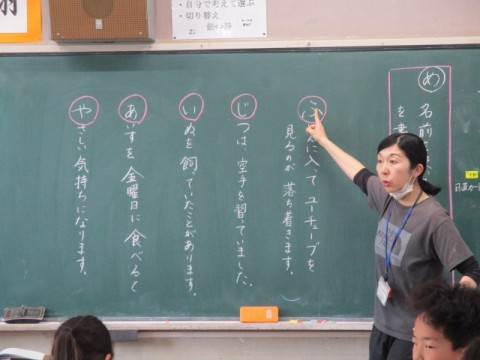 ・自分で考えて選ぶ
・切り替え
め
名前
を
こ に入って ユーチューブを
見るのが 落ち着きます。
じつは、空手を習っていました。
いぬを飼っていたことがあります。
あいすを金曜日に食べると
やさしい気持ちになります。
日直カー